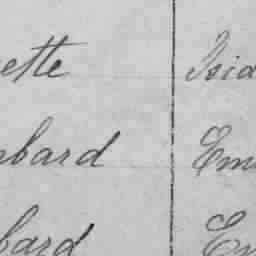 ette Isia
mbard Em
bard Em